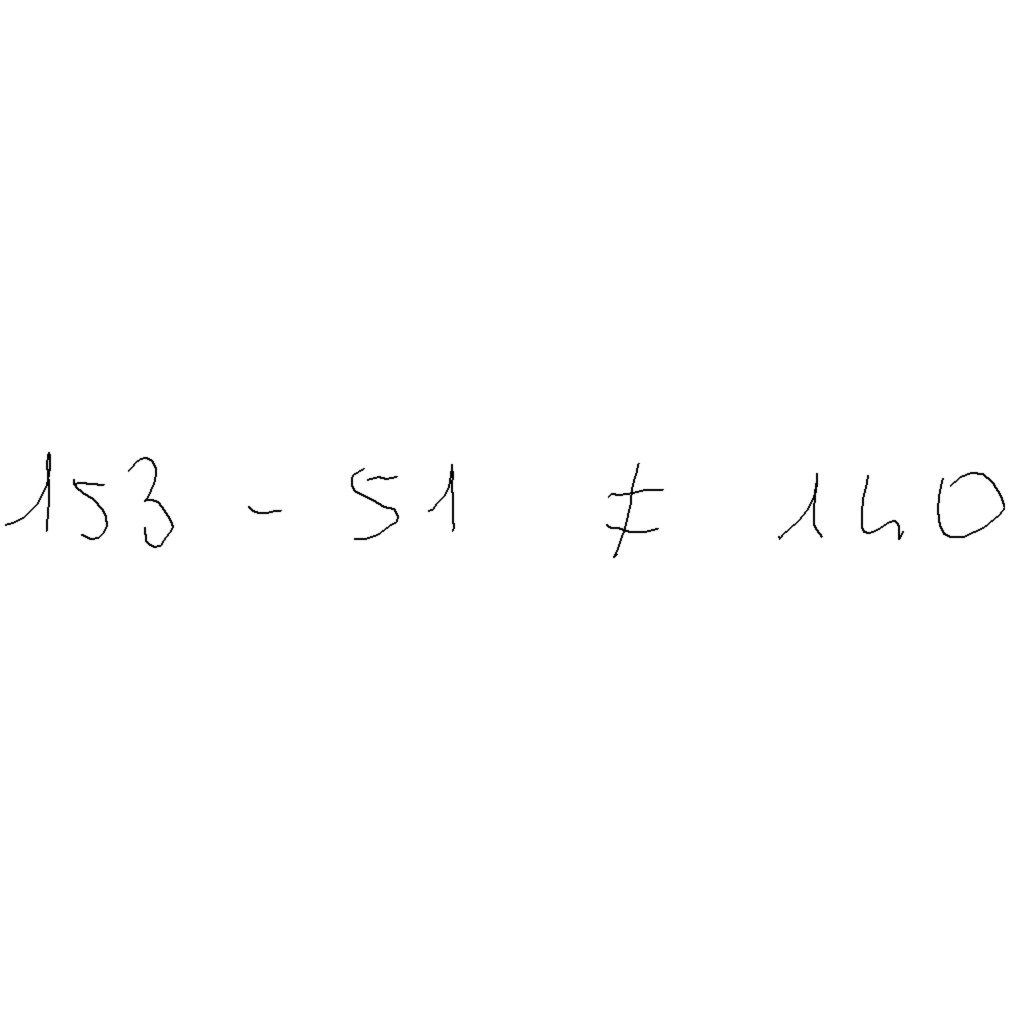 153 - 51 ≠ 140